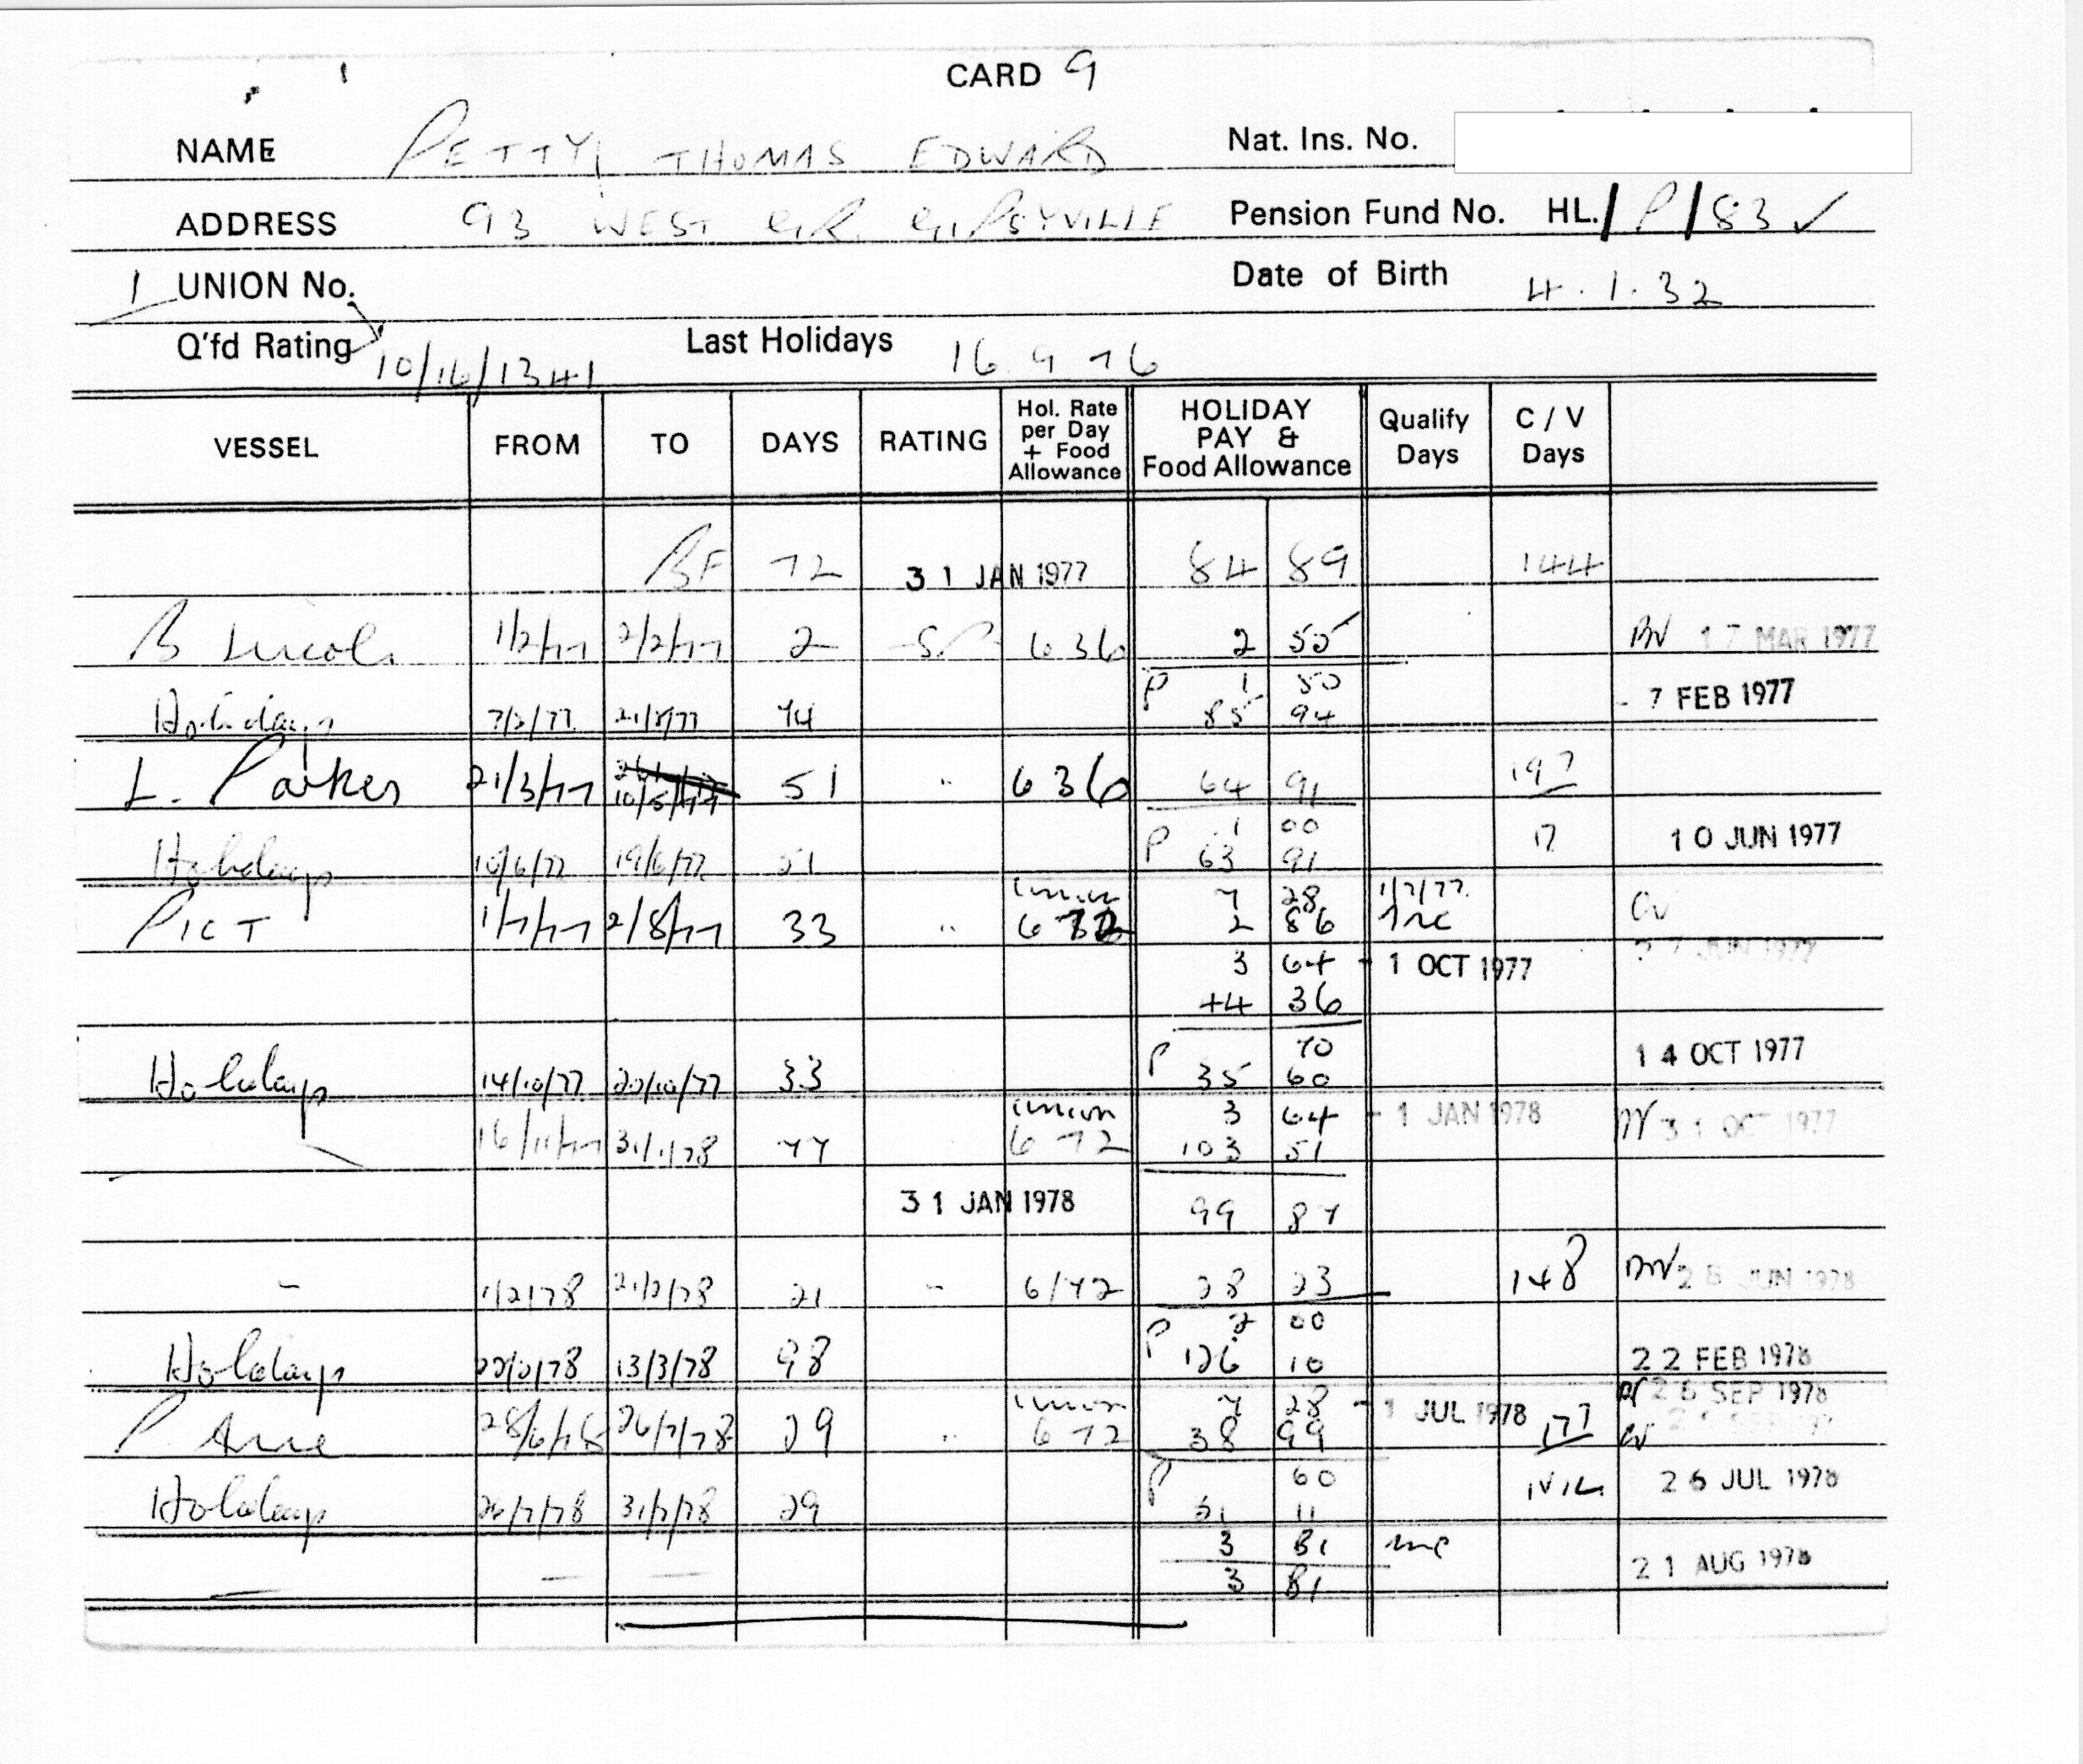 CARD 9
NAME PETTY, THOMAS EDWARD Nat. Ins. No.
ADDRESS 93 WEST GR. GIPSYVILLE Pension Fund No. HL./P/83 ✓
1 UNION No. Date of Birth 4.1.32
Q'fd Rating 10/16/1341 Last Holidays 16 9 76
VESSEL FROM TO DAYS RATING Hol. Rate per Day + Food Allowance HOLIDAY PAY & Food Allowance Qualify Days C / V Days
BF 72 31 JAN 1977 84 89 144
B Lincoln 1/2/77 2/2/77 2 SP 636 2 55 17 MAR 1977
P 1 50
Holidays 7/2/77 21/2/77 74 85 94 - 7 FEB 1977
L. Parkes 21/3/77 10/5/77 51 " 636 64 91 197
P 1 00 17 10 JUN 1977
Holidays 10/6/77 19/6/77 51 63 91
Union 7 28 1/7/77
PICT 1/7/77 2/8/77 33 " 672 2 86 Inc
3 64 - 1 OCT 1977 27 JUN 1977
44 36
P 70 14 OCT 1977
Holidays 14/10/77 20/10/77 33 35 60
Union 3 64 - 1 JAN 1978 31 OCT 1977
16/11/77 31/1/78 77 672 103 51
31 JAN 1978 99 87
- 1/2/78 21/2/78 21 - 6/72 28 23 148 26 JUN 1978
P 2 00
Holidays 22/2/78 13/3/78 98 126 10 22 FEB 1978
Union 7 28 - 1 JUL 1978 26 SEP 1978
P. Anne 28/6/78 26/7/78 29 " 672 38 99 177
P 60 26 JUL 1978
Holidays 26/7/78 31/7/78 29 31 11
3 81 Inc
3 81 21 AUG 1978